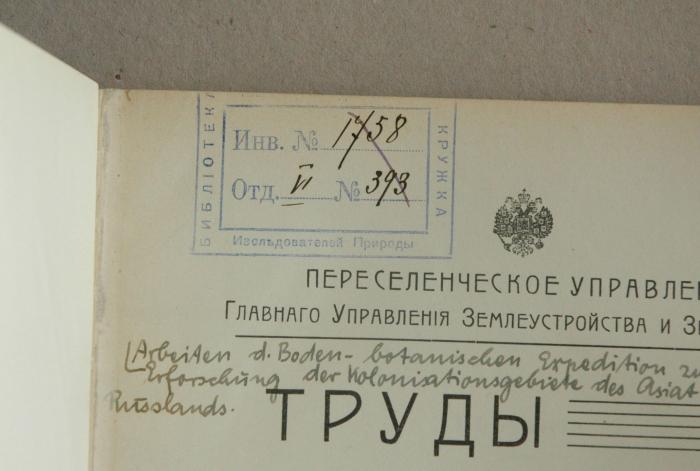 БИБЛІОТЕКА
Инв. № 1758
Отд. VI № 393
КРУЖКА
Изслѣдователей Природы
ПЕРЕСЕЛЕНЧЕСКОЕ УПРАВЛЕ
ГЛАВНАГО УПРАВЛЕНІЯ ЗЕМЛЕУСТРОЙСТВА И З
[Arbeiten d. Boden-botanischen Expedition zu
Erforschung der Kolonisationsgebiete des Asiat
Russlands.
ТРУДЫ